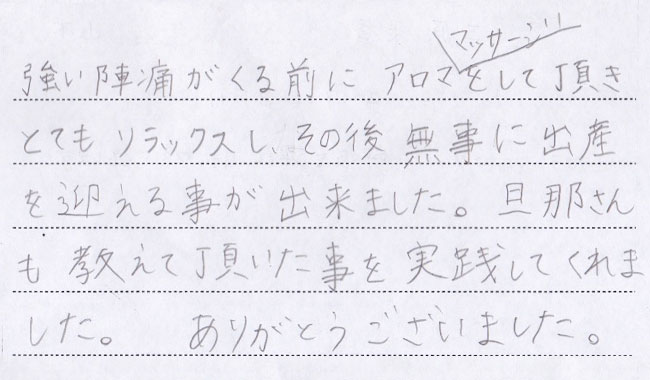 強い陣痛がくる前に アロママッサージをして頂き
とてもリラックスし、その後 無事に出産
を迎える事が 出来ました。旦那さん
も 教えて頂いた事を 実践してくれま
した。 ありがとうございました。